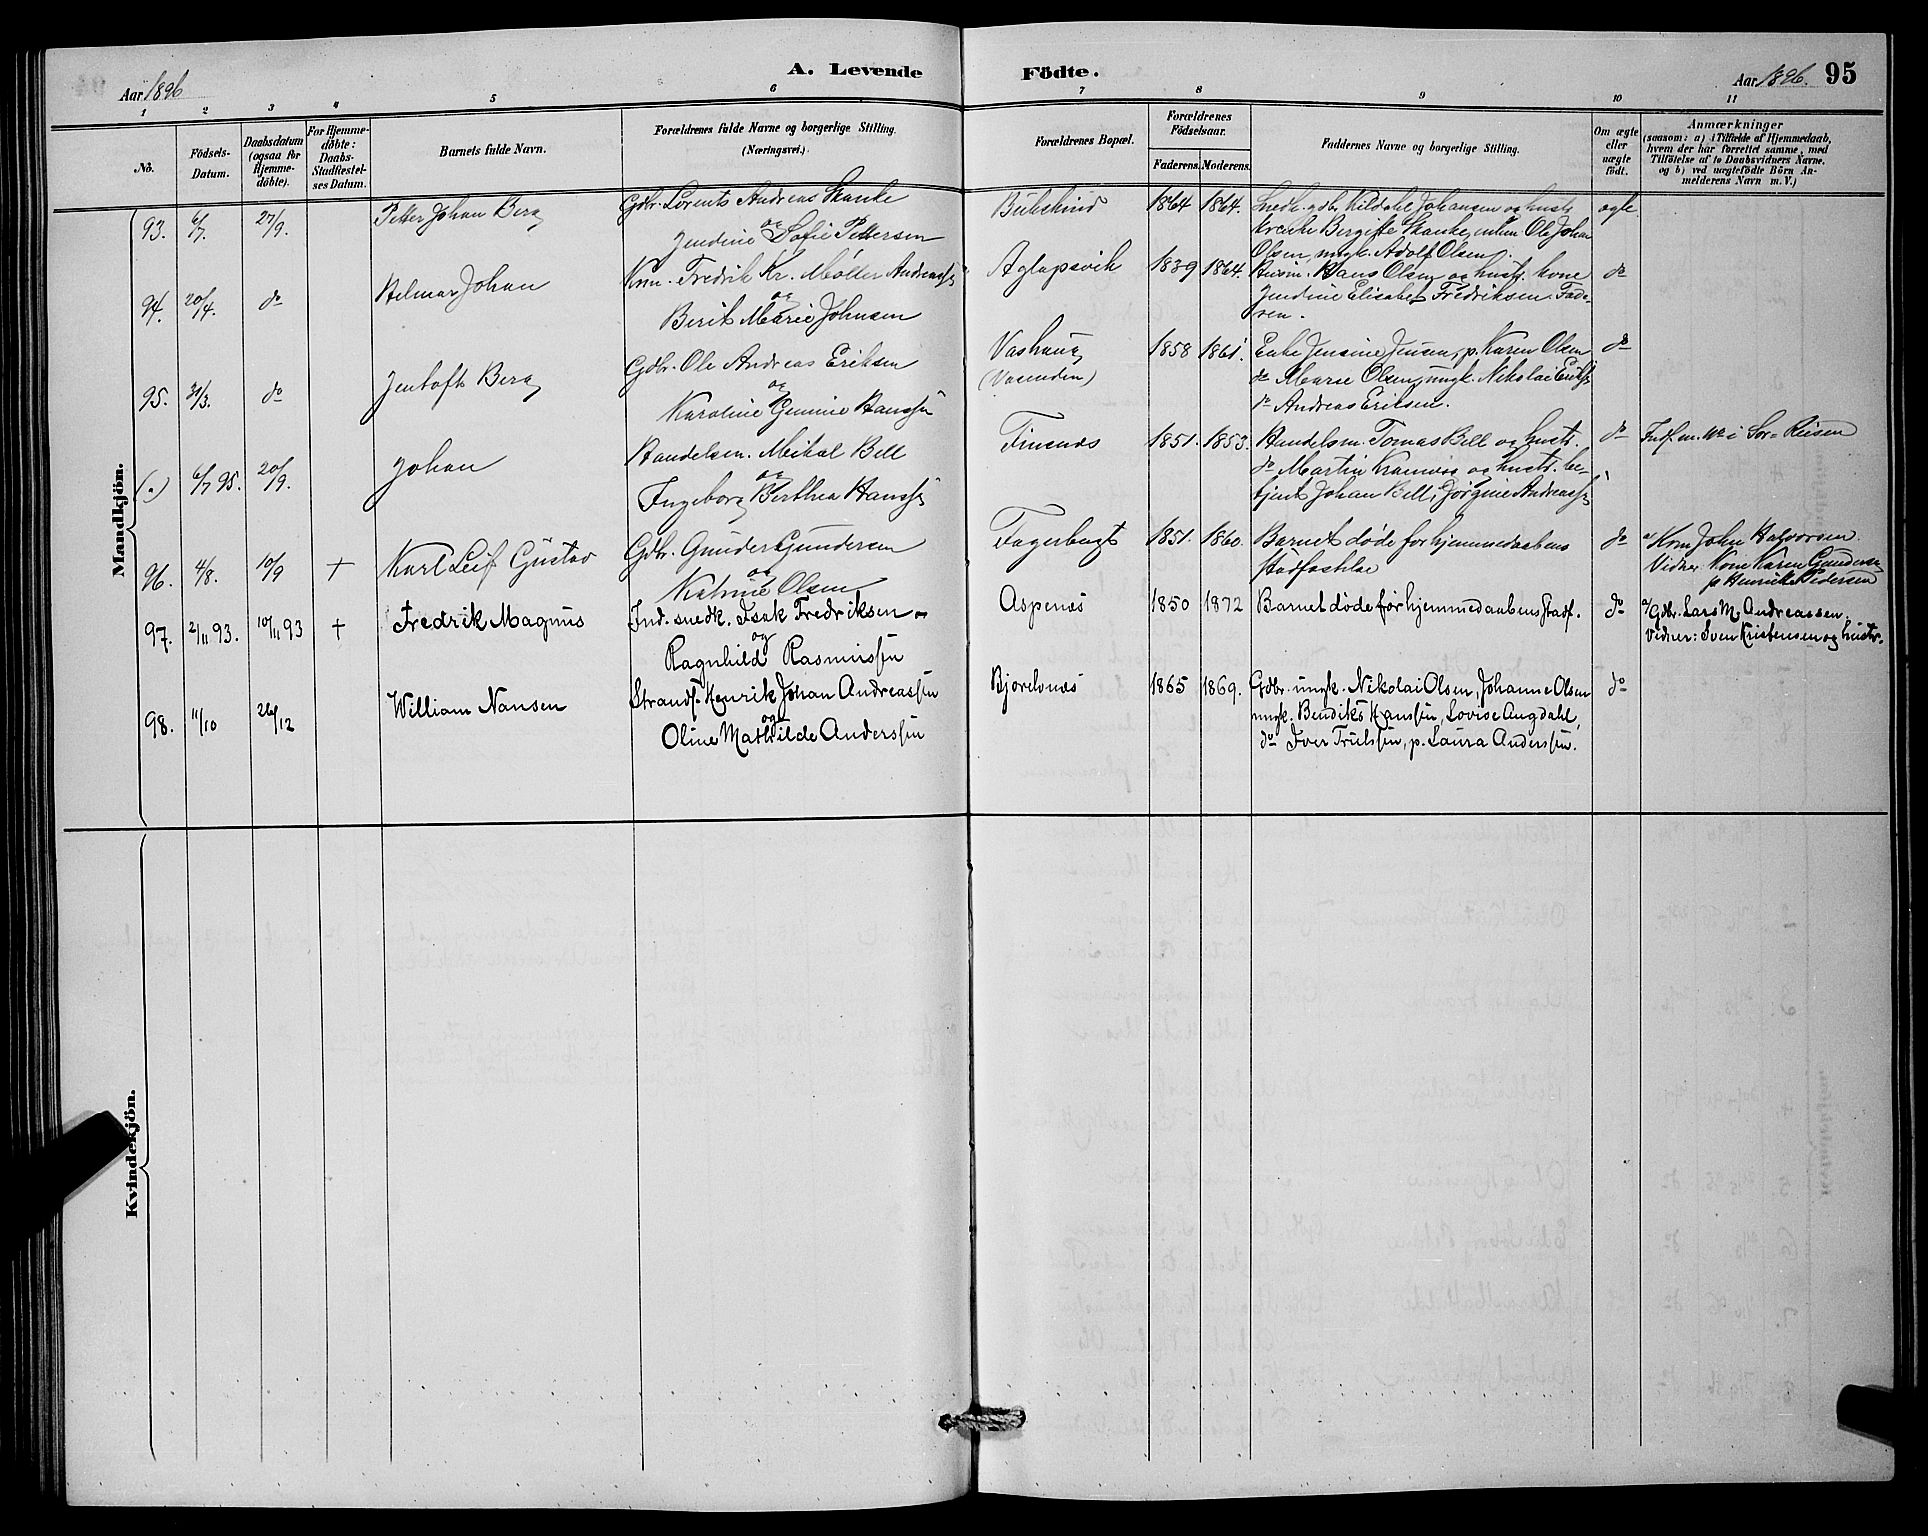 A. Levende Födte.
Aar 1896
Aar 1896. 95
1 2 3 4 5 6 7 8 9 10 11
No.
Födsels-Datum.
Daabsdatum (ogsaa for Hjemme-döbte).
For Hjemme-döbte: Daabs-Stadfæstel-ses Datum.
Barnets fulde Navn.
Forældrenes fulde Navne og borgerlige Stilling. (Næringsvei.)
Forældrenes Bopæl.
Forældrenes Födselsaar.
Faderens. Moderens.
Faddernes Navne og borgerlige Stilling.
Om ægte eller uægte födt.
Anmærkninger
(saasom: a) i Tilfælde af Hjemmedaab, hvem der har forrettet samme, med Tilföielse af to Daabsvidners Navne, og b) ved uægtefödte Börn An-melderens Navn m. V.)
Mandkjön.
93. 6/7. 27/9. Petter Johan Berg Gdbr. Lorents Andreas Skanke
og
Jendine Sofie Pettersen
1864 1864. Snedk. gdbr. Kildahl Johansen og hustr.
Bergitte Skanke, Ole Johan
Olsen, ungk. Adolf Olsen.
ægte
94. 20/4. do Helmar Johan Kom. Fredrik Kr. Møller Andreass.
og
Berit Marie Johnsen
Aglapsvik 1839 1864. Hans Olsen og hustr. kone
Jendine Elisabet Fredriksen. Fade-
ren.
do
95. 31/3. do Jentoft Berg Gdbr. Ole Andreas Eriksen
og
Karoline Hanssen
Vashaug
(Vasenden)
1858 1861. Enke Jensine Jensen, p. Karen Olsen
do Marie Olsen, ungk. Nikolai Eriks.
do Andreas Eriksen.
do
(.) 6/7 95. 20/9. Johan Handelsm. Mikal Bell
og
Ingeborg Berthea Hanss.
Finsnæs 1851. 1853. Handelsm. Tomas Bell og hustr.
do Martin Kræmer og hustr. be-
tjent Johan Bell, Jørgine Andreass.
do Indf. u. No i Sor-Reisen
96. 4/8. 10/9 + Karl Leif Gustav Gdbr. Gunder Gundersen
og
Katrine Olsen
1851. 1860. Barnet døde før hjemmedaabens
stadfæstelse
do a/ Kom John Halvorsen.
Vidner Kone Karen Gunders.
p. Henrikke Pedersen
97. 2/11 93. 10/11 93 + Fredrik Magnus Ind. snedk. Isak Fredriksen
og
Ragnhild Rasmussen
Aspenæs 1850 1872 Barnet døde før hjemmedaabens Stadf. do a/ Gdbr. Lars M. Andreassen.
Vidner: Sven Kristensen og hustr.
98. 11/10 26/12 William Nansen Strands. Henrik Johan Andreassen
og
Oline Mathilde Anderssen
Bjorelvnæs 1865 1869. Gdbr. ungk. Nikolai Olsen, Johanne Olsen
ungk. Bendikt Hanssen, Lovise Angdahl,
do Iver Trulssen, p. Laura Anderssen.
do
Kvindekjön.